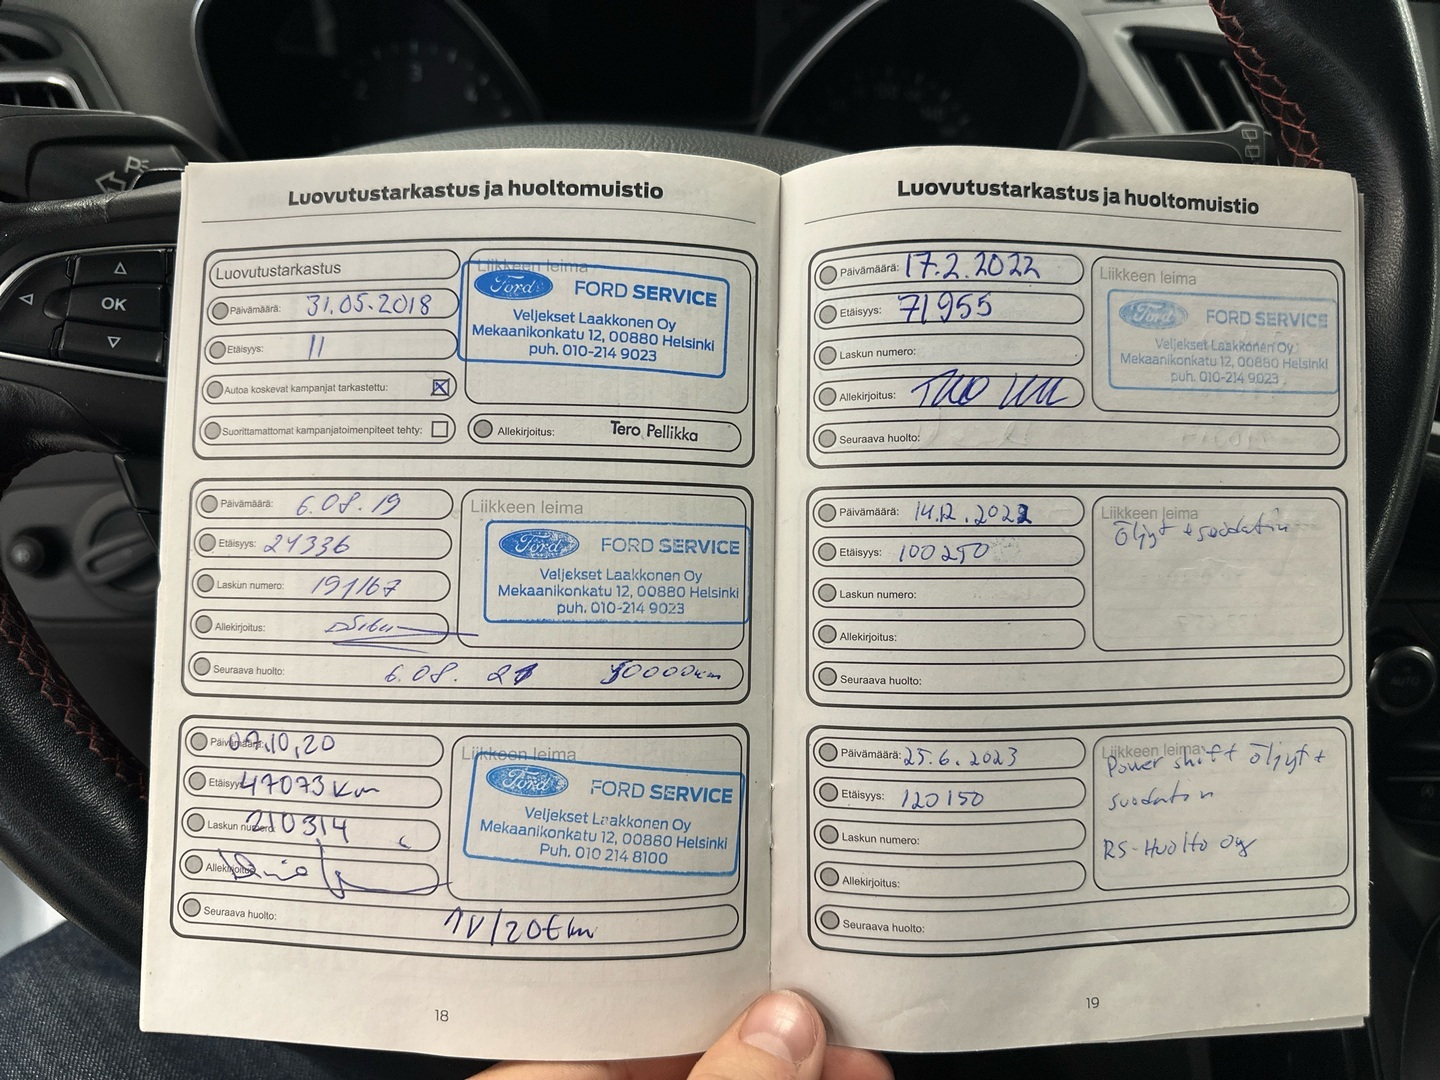 Luovutustarkastus ja huoltomuistio
Luovutustarkastus
Päivämäärä: 31.05.2018
Etäisyys: 11
Autoa koskevat kampanjat tarkastettu:
Suorittamattomat kampanjatoimenpiteet tehty:
Liikkeen leima
Ford FORD SERVICE
Veljekset Laakkonen Oy
Mekaanikonkatu 12, 00880 Helsinki
puh. 010-214 9023
Allekirjoitus: Tero Pellikka
Päivämäärä: 6.08.19
Etäisyys: 24336
Laskun numero: 191167
Allekirjoitus:
Liikkeen leima
Ford FORD SERVICE
Veljekset Laakkonen Oy
Mekaanikonkatu 12, 00880 Helsinki
puh. 010-214 9023
Seuraava huolto: 6.08. 21 50000km
Päivämäärä: 07.10,20
Etäisyys: 47073 km
Laskun numero: 210314
Allekirjoitus:
Liikkeen leima
Ford FORD SERVICE
Veljekset Laakkonen Oy
Mekaanikonkatu 12, 00880 Helsinki
Puh. 010 214 8100
Seuraava huolto: 1V/20tkm
18
Luovutustarkastus ja huoltomuistio
Päivämäärä: 17.2.2022
Etäisyys: 71955
Laskun numero:
Allekirjoitus:
Liikkeen leima
Ford FORD SERVICE
Veljekset Laakkonen Oy
Mekaanikonkatu 12, 00880 Helsinki
puh. 010-214 9023
Seuraava huolto:
Päivämäärä: 14.12.2022
Etäisyys: 100250
Laskun numero:
Allekirjoitus:
Liikkeen leima
Öljyt + suodatin
Seuraava huolto:
Päivämäärä: 25.6.2023
Etäisyys: 120150
Laskun numero:
Allekirjoitus:
Liikkeen leima
Power shift öljyt +
suodatin
RS-Huolto Oy
Seuraava huolto:
19
OK
AUTO